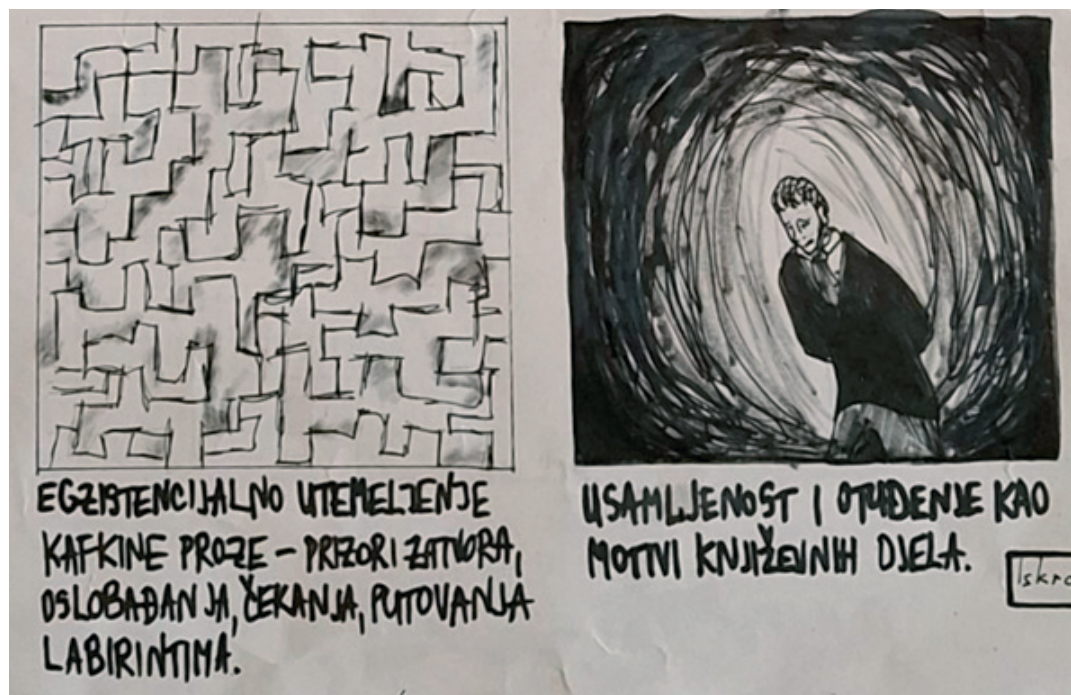 EGZISTENCIJALNO UTEMELJENJE
KAFKINE PROZE – PRIZORI ZATVORA,
OSLOBAĐANJA, ČEKANJA, PUTOVANJA
LABIRINTIMA.
USAMLJENOST I OTUĐENJE KAO
MOTIVI KNJIŽEVNIH DJELA.